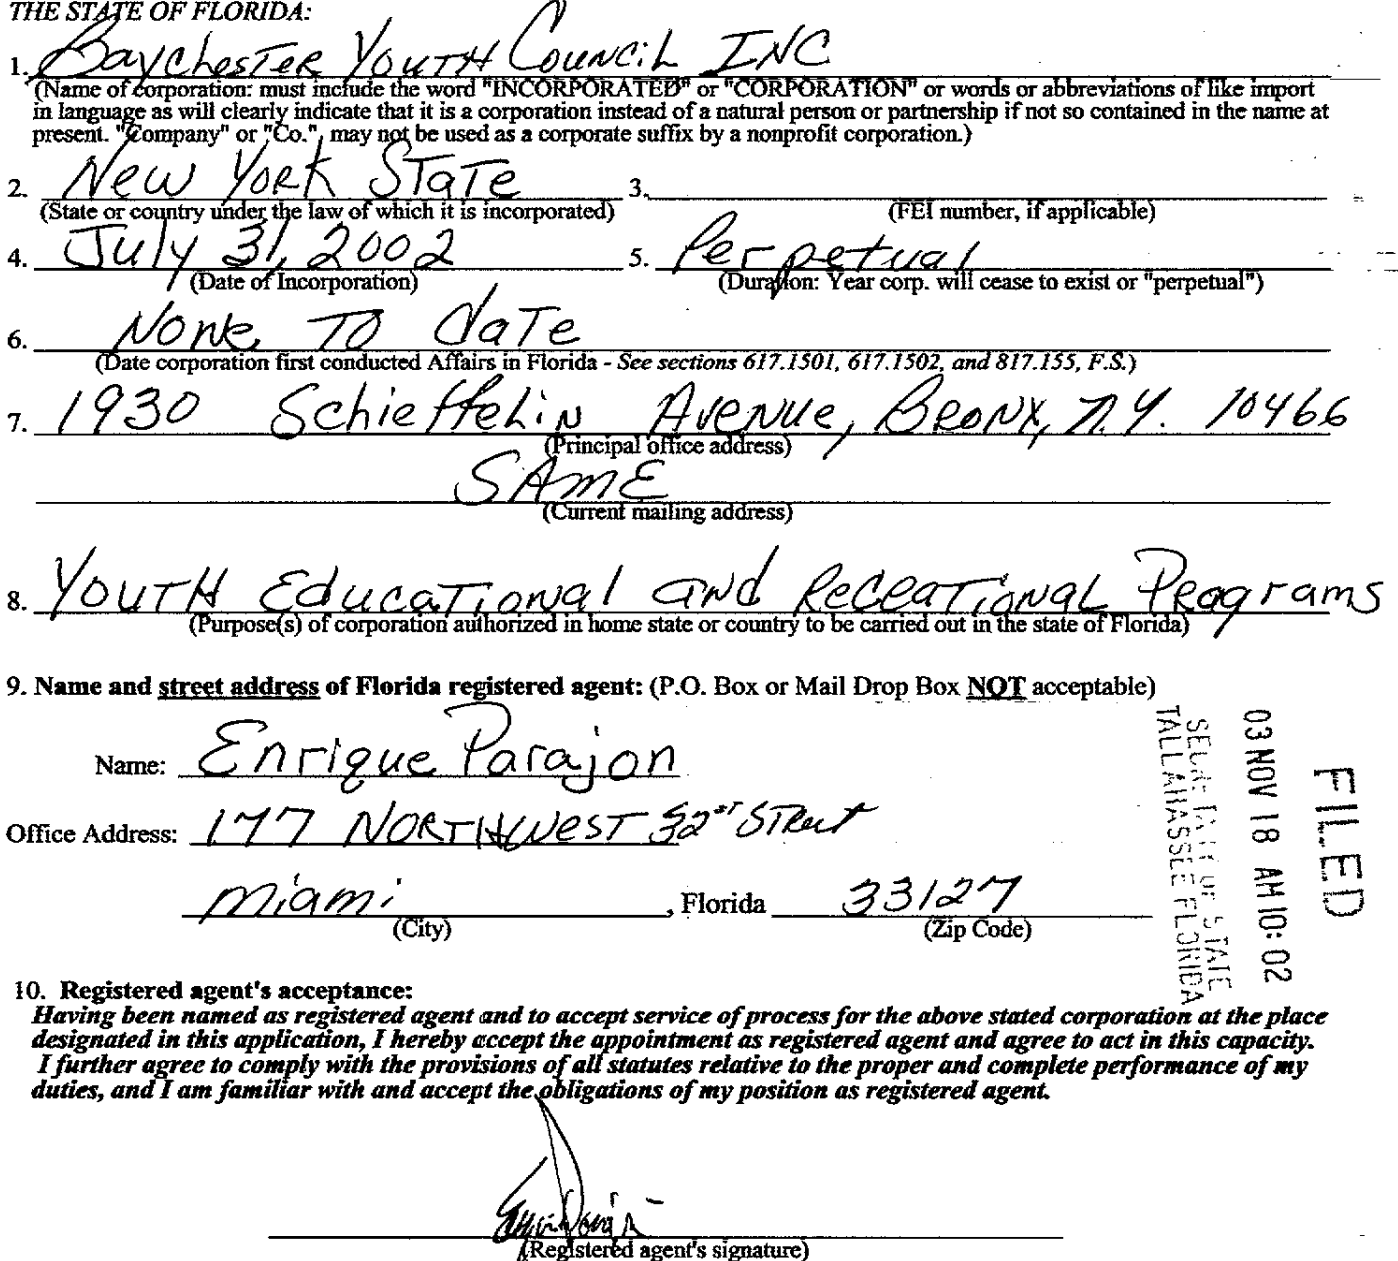 THE STATE OF FLORIDA:
1. Baychester Youth Council INC
(Name of corporation: must include the word "INCORPORATED" or "CORPORATION" or words or abbreviations of like import
in language as will clearly indicate that it is a corporation instead of a natural person or partnership if not so contained in the name at
present. "Company" or "Co.", may not be used as a corporate suffix by a nonprofit corporation.)
2. New York State 3.
(State or country under the law of which it is incorporated) (FEI number, if applicable)
4. July 31, 2002 5. Perpetual
(Date of Incorporation) (Duration: Year corp. will cease to exist or "perpetual")
6. None To date
(Date corporation first conducted Affairs in Florida - See sections 617.1501, 617.1502, and 817.155, F.S.)
7. 1930 Schieffelin Avenue, Bronx, N.Y. 10466
(Principal office address)
SAME
(Current mailing address)
8. Youth Educational and Recreational Programs
(Purpose(s) of corporation authorized in home state or country to be carried out in the state of Florida)
9. Name and street address of Florida registered agent: (P.O. Box or Mail Drop Box NOT acceptable)
Name: Enrique Parajon
Office Address: 177 Northwest 32st Street
Miami, Florida 33127
(City) (Zip Code)
FILED
03 NOV 18 AM 10:02
SECRETARY OF STATE
TALLAHASSEE FLORIDA
10. Registered agent's acceptance:
Having been named as registered agent and to accept service of process for the above stated corporation at the place
designated in this application, I hereby accept the appointment as registered agent and agree to act in this capacity.
I further agree to comply with the provisions of all statutes relative to the proper and complete performance of my
duties, and I am familiar with and accept the obligations of my position as registered agent.
(Registered agent's signature)